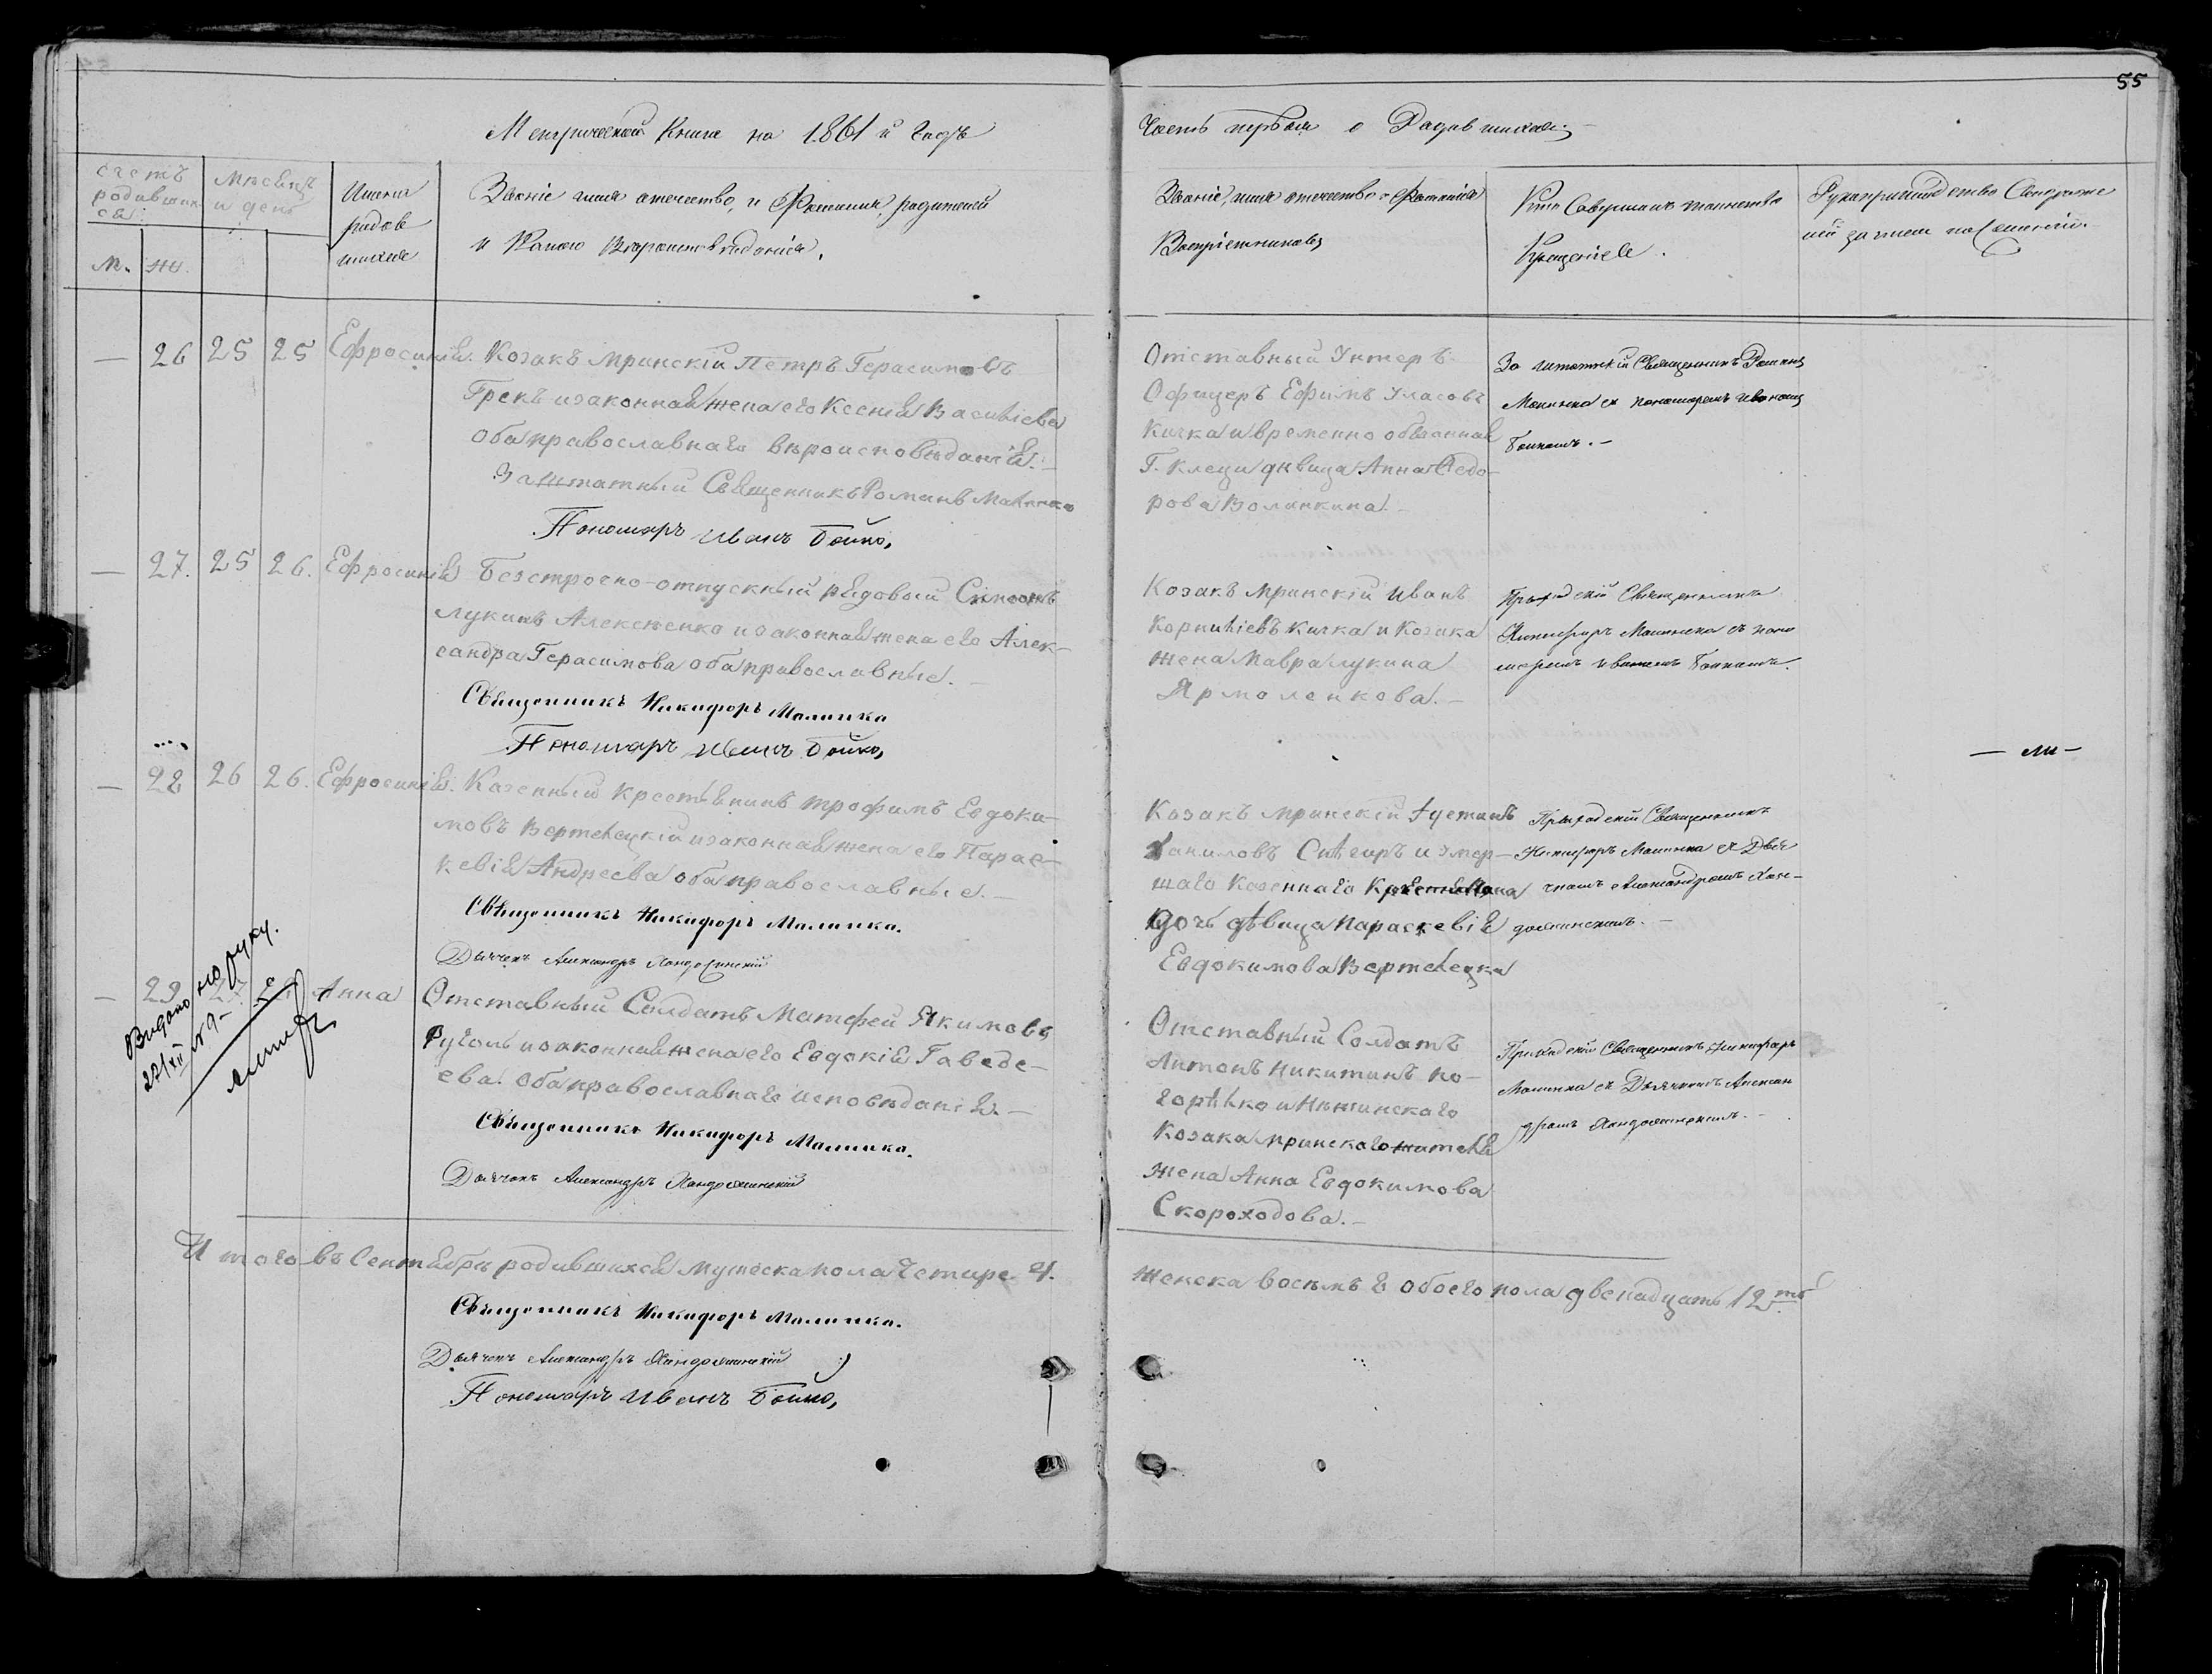 55
Метрической Книги на 1861й годъ
Часть первая о Родившихся
счетъ родившихся.
Мѣсяцъ и день
Имена родившихся
Званіе имя отечество, и Фамилія, родителей
и Какого Вѣроисповѣданія.
М. Ж.
Званіе, имя отечество и Фамилія
Воспріемниковъ
Кто Совершалъ таинство
Крещенія.
Рукоприкладство Свидѣтелей
записи по желанію.
— 26 25 25 Ефросинія.
Козакъ Мринскій Петръ Герасимовъ
Грекъ и законная жена его Ксенія Васильева
оба православнаго вѣроисповѣданія.
Заштатный Священникъ Романъ Малинка
Пономаръ Иванъ Бойко,
Отставный Унтеръ
Офицеръ Ефимъ Уласовъ
Кичка и временно обязанная
Г. Клеци дѣвица Анна Ѳедо-
рова Волинкина.
За штатній Священникъ Романъ
Малинка съ пономаремъ Иваномъ
Бойкомъ.
— 27. 25 26. Ефросинія
Безсрочно-отпускный рядовый Симеонъ
Лукинъ Алексѣенко и законная жена его Алек-
сандра Герасимова оба православные.
Священникъ Никифоръ Малинка
Пономаръ Иванъ Бойко,
Козакъ Мринскій Иванъ
Корниліевъ Кичка и Козака
жена Мавра Лукина
Ярмоленкова.
Приходскій Священникъ
Никифоръ Малинка съ поно
маремъ Иваномъ Бойкомъ.
— 28 26 26. Ефросинія.
Казенный крестьянинъ Трофимъ Евдоки-
мовъ Вертелецкій и законная жена его Парас-
кевія Андреева оба православные.
Священникъ Никифоръ Малинка.
Дьячекъ Александръ Хандожинскій
Козакъ Мринскій Аустинъ
Даниловъ Снѣгиръ и умер-
шаго Казеннаго Крестьянина
дочь дѣвица Параскевія
Евдокимова Вертелецка
Приходскій Священникъ
Никифоръ Малинка съ Дья
чкомъ Александромъ Хан-
дожинскимъ.
— 29 27 Анна
Отставный Солдатъ Матфей Якимовъ
Руголь и законная жена его Евдокія Гаведе-
ева. Оба православнаго исповѣданія.
Священникъ Никифоръ Малинка.
Дьячекъ Александръ Хандожинскій
Отставный Солдатъ
Антонъ Никитинъ По-
горѣлко и Нѣжинскаго
Козака Мринскаго жителя
жена Анна Евдокимова
Скороходова.
Приходскій Священникъ Никифоръ
Малинка съ Дьячкомъ Алексан
дромъ Хандожинскимъ.
Видано на руку.
27/XII № 9
Итого въ Сентябрѣ родившихся мужеска пола Четире 4.
Женска восемь 8 обоего пола двенадцать 12ть
Священникъ Никифоръ Малинка.
Дьячекъ Александръ Хандожинскій
Пономаръ Иванъ Бойко,